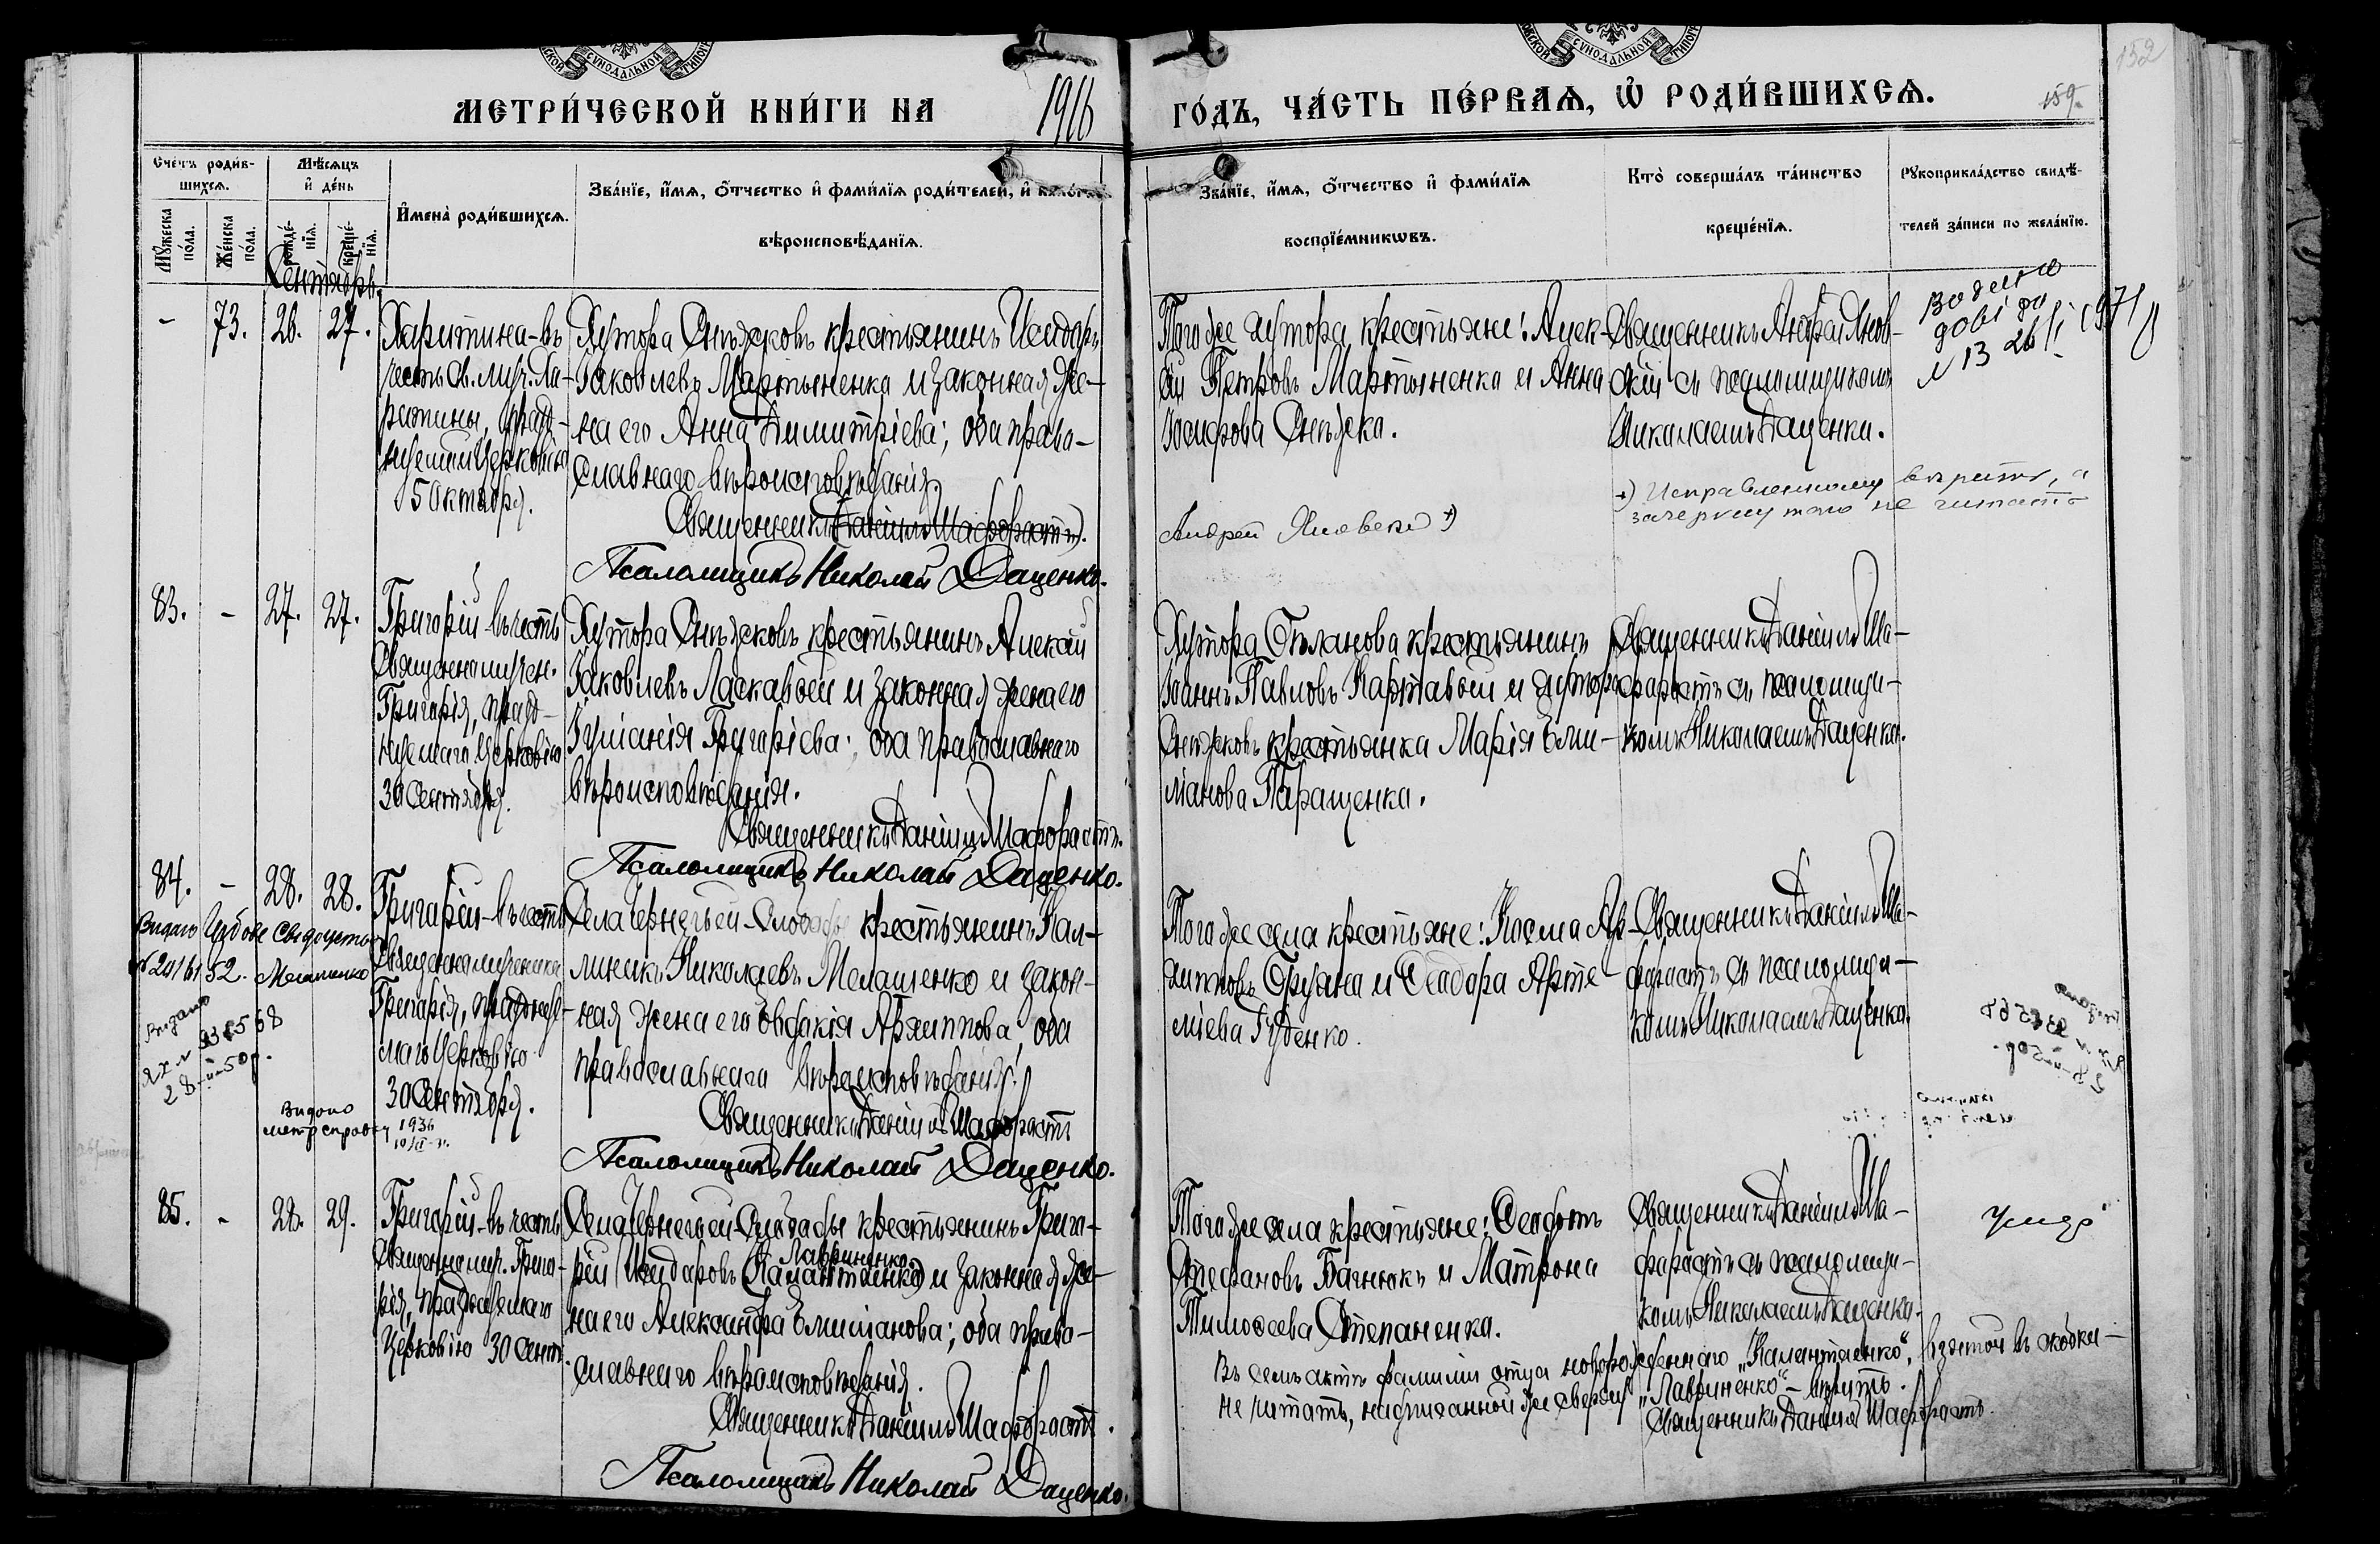 МЕТРИ́ЧЕСКОЙ КНИ́ГИ НА 1916 ГО́ДЪ, ЧА́СТЬ ПЕ́РВАѦ, Ѡ҆ РОДИ́ВШИХСѦ.
152
159.
Счетъ роди́в-
шихсѧ.
Мѣ́сѧцъ
и҆ де́нь
И҆мена̀ роди́вшихсѧ.
Зва́нїе, и҆́мѧ, ѻ҆́тчество и҆ фами́лїѧ роди́телей, и҆ како́гѡ
вѣроисповѣ́данїѧ.
Мꙋ́жеска
по́ла.
Же́нска
по́ла.
рожде́-
нїѧ.
креще́-
нїѧ.
Зва́нїе, и҆́мѧ, ѻ҆́тчество и҆ фами́лїѧ
воспрїе́мникѡвъ.
Кто̀ соверша́лъ та́инство
креще́нїѧ.
Рꙋкоприкла́дство свидѣ́-
телей за́писи по жела́нїю.
Сентябрь.
- 73. 26. 27.
Харитина-въ
честь св. муч. Ха-
ритины, празд-
нуемыя Церковію
5 Октября.
Хутора Снѣжковъ крестьянинъ Исидоръ
Іаковлевъ Мартыненко и законная же-
на его Анна Димитріева; оба право-
славнаго вѣроисповѣданія.
Священникъ Даніилъ Шафорастъ).
Псаломщикъ Николай Даценко.
Того же хутора крестьяне: Алек-
сій Петровъ Мартыненко и Анна
Іосифова Снѣжка.
Андрей Яновскій +)
Священникъ Андрей Янов-
скій съ псаломщикомъ
Николаемъ Даценко.
+) Исправленному вѣрить, а
зачеркнутаго не читать
N 13 26/
1971
83. - 27. 27.
Григорій-въ честь
Священномучен.
Григорія, празд-
нуемаго Церковію
30 Сентября.
Хутора Снѣжковъ крестьянинъ Алексій
Іаковлевъ Ласкавый и законная жена его
Іуліанія Григоріева; оба православнаго
вѣроисповѣданія.
Священникъ Даніилъ Шафорастъ.
Псаломщикъ Николай Даценко.
Хутора Степанова крестьянинъ
Іоаннъ Павловъ Картавый и хутора
Снѣжковъ крестьянка Марія Еми-
ліанова Паращенко.
Священникъ Даніилъ Ша-
форастъ съ псаломщи-
комъ Николаемъ Даценко.
84. - 28. 28.
Григорій-въ честь
Священномученика
Григорія, празднуе-
маго Церковію
30 Сентября.
Села Чернечьей-Слободы крестьянинъ Кал-
линикъ Николаевъ Мелащенко и закон-
ная жена его Евдокія Архиппова; оба
православнаго вѣроисповѣданія.
Священникъ Даніилъ Шафорастъ
Псаломщикъ Николай Даценко.
Видано
52.
Мелащенко
Видано
28 50р.
Видано
метр справку 1936
Того же села крестьяне: Косма
и Ѳеодора Арте-
міева Гуденко.
Священникъ Даніилъ Ша-
форастъ съ псаломщи-
комъ Николаемъ Даценко.
85. - 28. 29.
Григорій-въ честь
Священномуч. Григо-
рія, празднуемаго
Церковію 30 Сент.
Села Чернечьей-Слободы крестьянинъ Григо-
рій Исидоровъ (Калантаенко) Лавриненко и законная же-
на его Александра Емиліанова; оба право-
славнаго вѣроисповѣданія.
Священникъ Даніилъ Шафорастъ.
Псаломщикъ Николай Даценко.
Того же села крестьяне: Ѳеодотъ
Стефановъ Багнюкъ и Матрона
Тимоѳеева Степаненко.
Священникъ Даніилъ Ша-
форастъ съ псаломщи-
комъ Николаемъ Даценко.
Умеръ
Въ семъ актѣ фамиліи отца новорожденнаго „Калантаенко“, взятой въ скобки-
не читать, надписанной же сверху „Лавриненко“ - вѣрить.
Священникъ Даніилъ Шафорастъ.